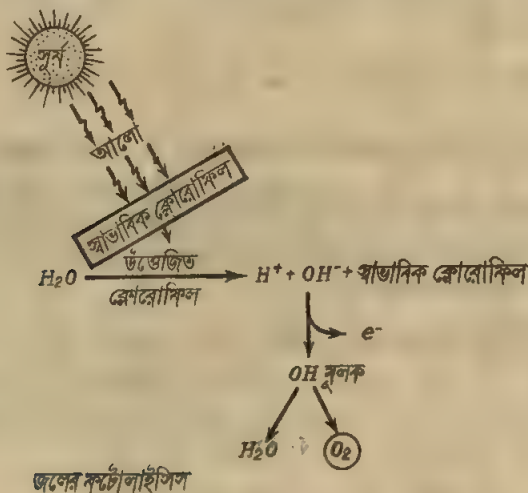 সূর্য
আলো
স্বাভাবিক ক্লোরোফিল
H₂O উত্তেজিত ক্লোরোফিল H⁺ + OH⁻ + স্বাভাবিক ক্লোরোফিল
e⁻
OH মূলক
H₂O O₂
জলের ফটোলাইসিস